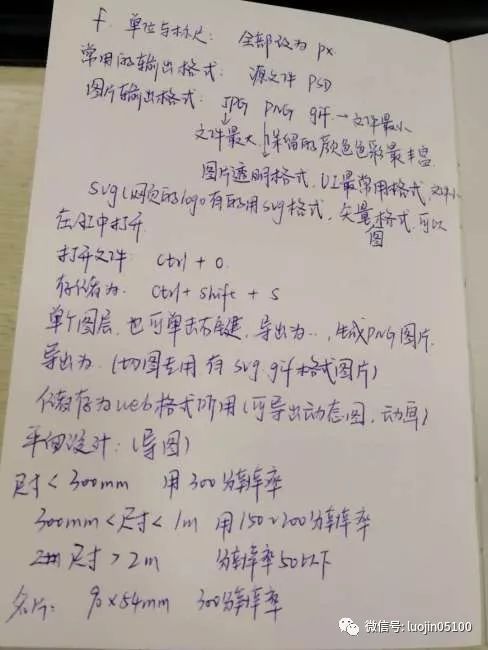 f. 单位与标尺: 全部设为 px
常用的输出格式: 源文件 PSD
图片输出格式: JPG PNG gif → 文件最小
文件最大 保留的颜色色彩最丰富
图片透明格式, UI最常用格式, 文件小
svg (网页的logo有的用svg格式, 矢量图格式, 可以
在AI中打开
打开文件 ctrl + O.
存储为: ctrl + shift + S
单个图层, 也可单击右键, 导出为…, 生成PNG图片.
导出为. (切图专用 存 svg. gif 格式图片)
储存为web格式所用 (可导出动态图, 动画)
平面设计: (导图)
尺寸 < 300mm 用 300分辨率
300mm < 尺寸 < 1m 用150~200分辨率
尺寸 > 2m 分辨率50以下
名片: 90×54mm 300分辨率
微信号: luojin05100